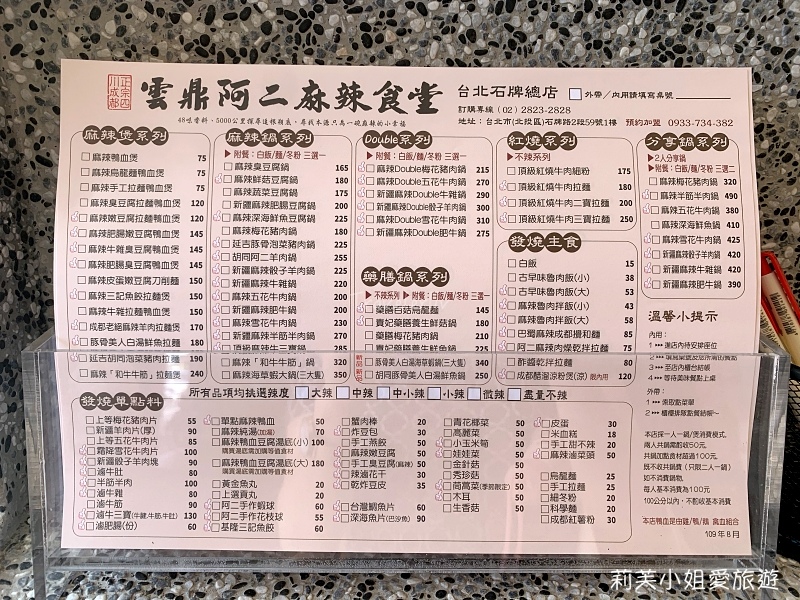 正宗四川成都
雲鼎阿二麻辣食堂
48味香料，5000公里探尋這根頭底，尋找本源只為一碗麻辣的小幸福
台北石牌總店
外帶／內用請填寫桌號
訂購專線 (02) 2823-2828
地址：台北市(北投區)石牌路2段59號1樓 預約加盟 0933-734-382
麻辣煲系列
麻辣鴨血煲 75
麻辣烏龍麵鴨血煲 75
麻辣手工拉麵鴨血煲 75
麻辣臭豆腐拉麵鴨血煲 120
麻辣嫩豆腐拉麵鴨血煲 120
麻辣肥腸嫩豆腐鴨血煲 145
麻辣牛雜臭豆腐鴨血煲 145
麻辣肥腸臭豆腐鴨血煲 145
麻辣皮蛋嫩豆花刀削麵 150
麻辣三記魚餃拉麵煲 150
麻辣牛雜拉麵鴨血煲 150
成都老媽麻辣羊肉拉麵煲 170
豚骨美人白湯鮮魚拉麵 180
延吉胡同泡菜豬肉拉麵 190
麻辣「和牛牛筋」拉麵煲 240
麻辣鍋系列
附餐：白飯/麵/冬粉 三選一
麻辣臭豆腐鍋 165
麻辣鮮菇豆腐鍋 180
麻辣蔬菜豆腐鍋 175
新疆麻辣肥腸豆腐鍋 200
麻辣深海鮮魚豆腐鍋 225
麻辣梅花豬肉鍋 180
延吉豚骨泡菜豬肉鍋 225
胡同阿二羊肉鍋 255
新疆麻辣骰子羊肉鍋 225
新疆麻辣牛雜鍋 220
麻辣五花牛肉鍋 200
新疆麻辣肥牛鍋 200
麻辣雪花牛肉鍋 230
新疆麻辣半筋半肉鍋 300
頂級麻辣牛三寶鍋 285
麻辣「和牛牛筋」鍋 320
麻辣海草蝦大鍋(三大隻) 350
Double系列
附餐：白飯/麵/冬粉 三選一
麻辣Double梅花豬肉鍋 215
麻辣Double五花牛肉鍋 270
新疆麻辣Double牛雜鍋 290
新疆麻辣Double骰子羊肉鍋 300
麻辣Double雪花牛肉鍋 310
新疆麻辣Double肥牛鍋 275
藥膳鍋系列
不辣系列 附餐：白飯/麵/冬粉 三選一
藥膳百菇烏龍麵 145
貴妃藥膳養生鮮菇鍋 180
藥膳梅花豬肉鍋 210
豚骨美人白湯海草蝦鍋(三大隻) 340
胡同豚骨美人白湯鮮魚鍋 250
紅燒系列
不辣系列
頂級紅燒牛肉細粉 175
頂級紅燒牛肉拉麵 180
頂級紅燒牛肉二寶拉麵 200
頂級紅燒牛肉三寶拉麵 250
發燒主食
白飯 15
古早味魯肉飯(小) 38
古早味魯肉飯(大) 53
麻辣魯肉拌飯(小) 43
麻辣魯肉拌飯(大) 58
巴蜀麻辣成都擔擔麵 85
阿二麻辣肉燥乾拌麵 75
酢醬乾拌麵 80
成都酷溜涼粉煲(涼) 限內用 120
分享鍋系列
2人分享鍋
附餐：白飯/麵/冬粉 三選二
麻辣梅花豬肉鍋 320
麻辣半筋半肉鍋 490
麻辣五花牛肉鍋 380
麻辣深海鮮魚鍋 410
麻辣雪花牛肉鍋 425
新疆麻辣骰子羊肉鍋 420
新疆麻辣牛雜鍋 420
新疆麻辣肥牛鍋 390
溫馨小提示
內用：
1 ▸▸▸ 進店內待安排座位
3 ▸▸▸ 至店內櫃台結帳
4 ▸▸▸ 等待美味餐點上桌
外帶：
1 ▸▸▸ 索取點菜單
2 ▸▸▸ 櫃檯排隊點餐結帳~
本店採一人一鍋/煲消費模式.
兩人共鍋需酌收50元.
共鍋加點食材超過100元,
既不收共鍋費（只限二人一鍋）
如不消費鍋物,
每人基本消費為100元
100公分以內，不酌收基本消費
本店鴨血是由雞/鴨/鵝 禽血組合
109年8月
所有品項均挑選辣度 大辣 中辣 中小辣 小辣 微辣 盡量不辣
發燒單點料
上等梅花豬肉片 55
新疆羊肉片(厚) 90
上等五花牛肉片 85
霜降雪花牛肉片 100
新疆骰子羊肉塊 90
滷牛肚 80
半筋半肉 100
滷牛雜 80
滷牛筋 90
滷牛三寶(牛腱.牛筋.牛肚) 130
滷肥腸(份) 60
單點麻辣鴨血 50
麻辣純湯(加湯) 70
麻辣鴨血豆腐湯底(小) 100
購買湯底需加購等值食材
麻辣鴨血豆腐湯底(大) 180
購買湯底需加購等值食材
黃金魚丸 20
上選貢丸 20
阿二手作蝦球 60
阿二手作花枝球 55
基隆三記魚餃 60
蟹肉棒 20
炸豆包 30
手工蒸餃 50
麻辣嫩豆腐 50
手工臭豆腐(麻辣) 50
辣滷花干 30
乾炸豆皮 35
台灣鯛魚片 60
深海魚片(巴沙魚) 90
青花椰菜 50
高麗菜 50
小玉米筍 50
娃娃菜 50
金針菇 50
秀珍菇 50
茼萵菜(季節限定) 50
木耳 50
生香菇 50
皮蛋 30
米血糕 18
手工甜不辣 20
麻辣滷菜頭 50
烏龍麵 25
手工拉麵 25
細冬粉 20
科學麵 20
成都紅薯粉 30
莉芙小姐愛旅遊